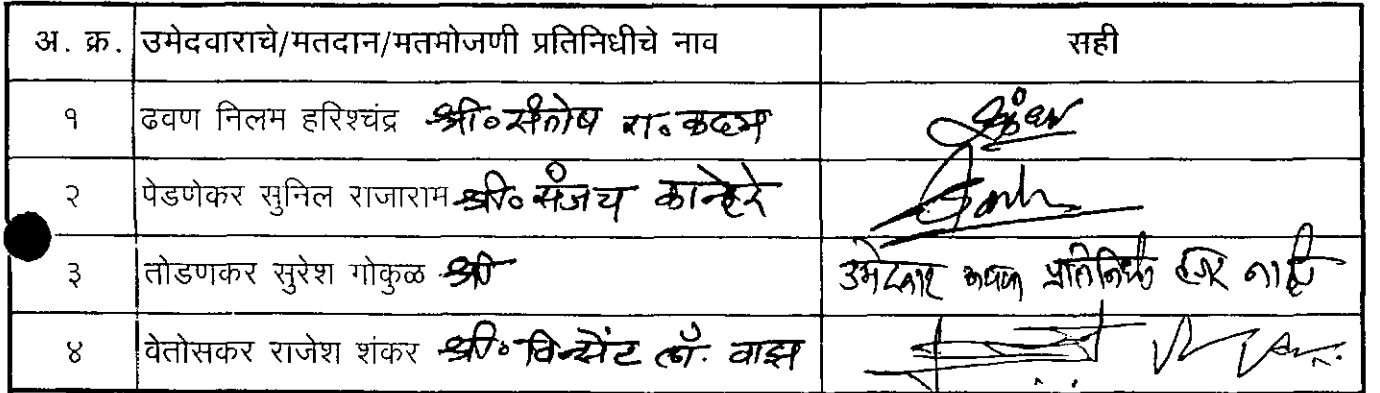 अ. क्र. उमेदवाराचे/मतदान/मतमोजणी प्रतिनिधीचे नाव सही
१ ढवण निलम हरिश्चंद्र श्री० संतोष रा. कदम
२ पेडणेकर सुनिल राजाराम श्री० संजय कान्हेरे
३ तोडणकर सुरेश गोकुळ श्री उमेदवार अथवा प्रतिनिधी हजर नाही
४ वेतोसकर राजेश शंकर श्री० विन्सेंट लॉ. वाझ